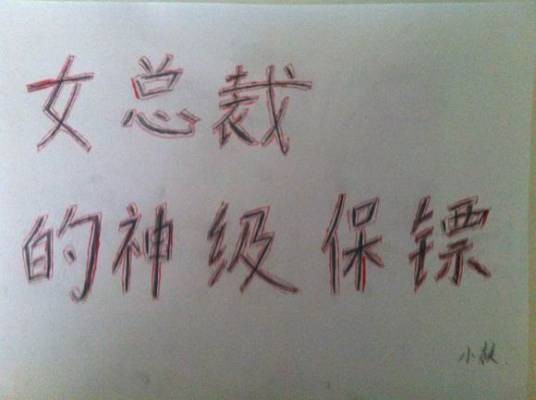 女总裁
的神级保镖